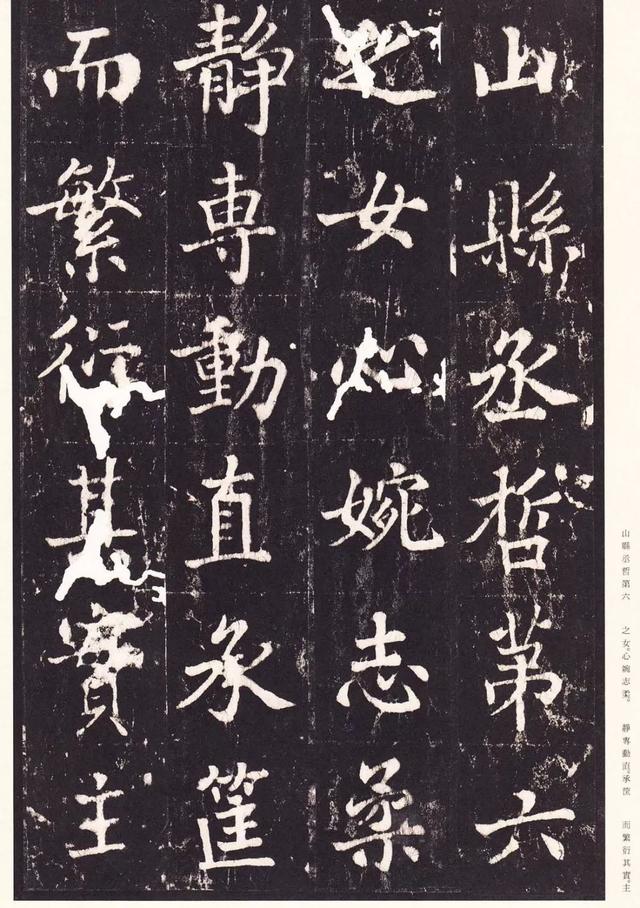 山縣丞哲第六
之女心婉志柔
靜專動直承筐
而繁衍其實主
山縣丞哲第六　之女。心婉志柔。　靜專動直。承筐　而繁衍其實。主